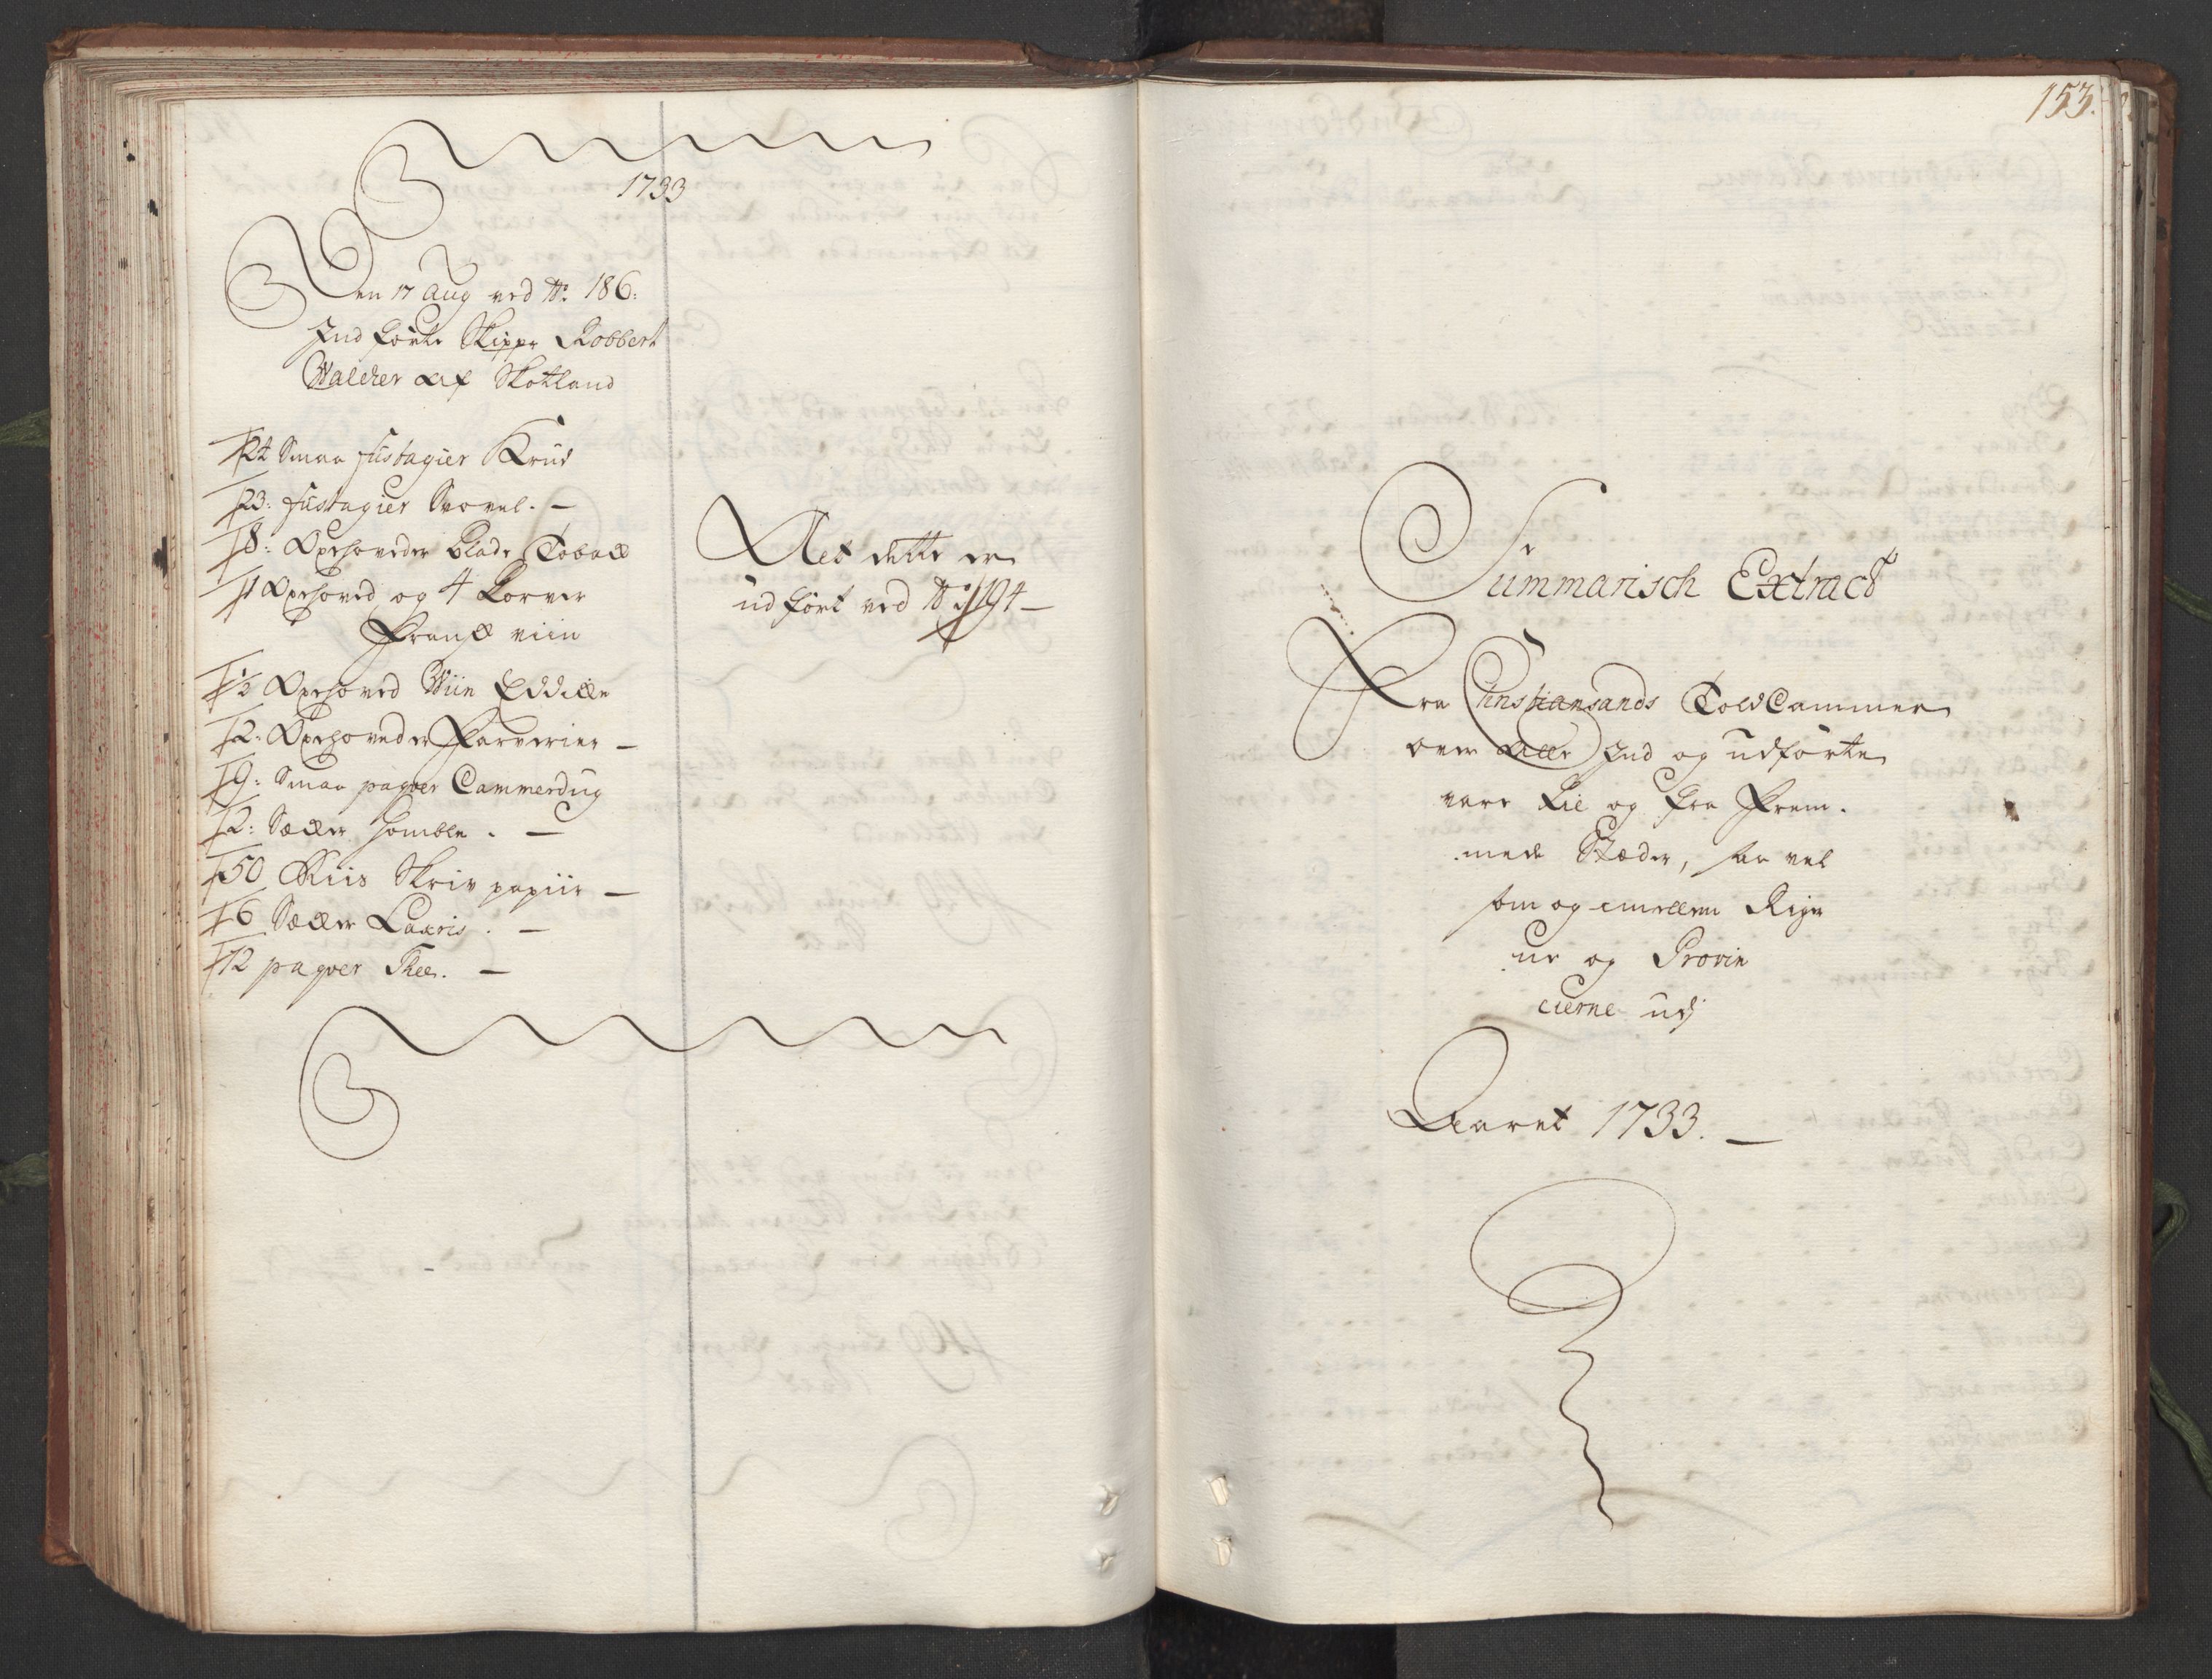 1733
Den 17 Aug ved No. 186:
Indførte Skippr Robbert
Walcher af Skotland
24 Smaa fustagier Krud
23: fustagier Svovel. —
8: Oxehoveder blade Toback
1 Oxehoved og 4 Korver
Fransk viin
½ Oxehoved Wiin Eddicke
2: Oxehoveder Farverier —
9: Smaa paqver Cammerdug
2: Sæcker Homble. —
50 Riis Skriv papiir —
6 Sæcker Laxris. —
12 paqver Thee. —
Alt dette er
udført ved No. 194 —
153.
Summarisch Extract
Fra Christiansands Told Cammer
over alle Ind og udførte
vare til og fra Frem-
mede Stæder, saa vel
som og imellem Riger
ne og Provin
cierne udj
Aaret 1733. —